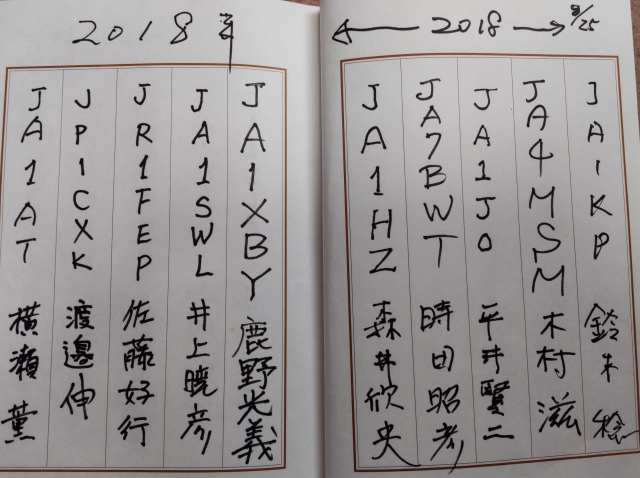 2018 8/25
JA1KP 鈴木
JA4MSM 木村 滋
JA1JO 平井賢二
JA7BWT 時田昭孝
JA1HZ 森井欣央
2018年
JA1XBY 鹿野光義
JA1SWL 井上暁彦
JR1FEP 佐藤好行
JP1CXK 渡邊伸
JA1AT 横瀬薫